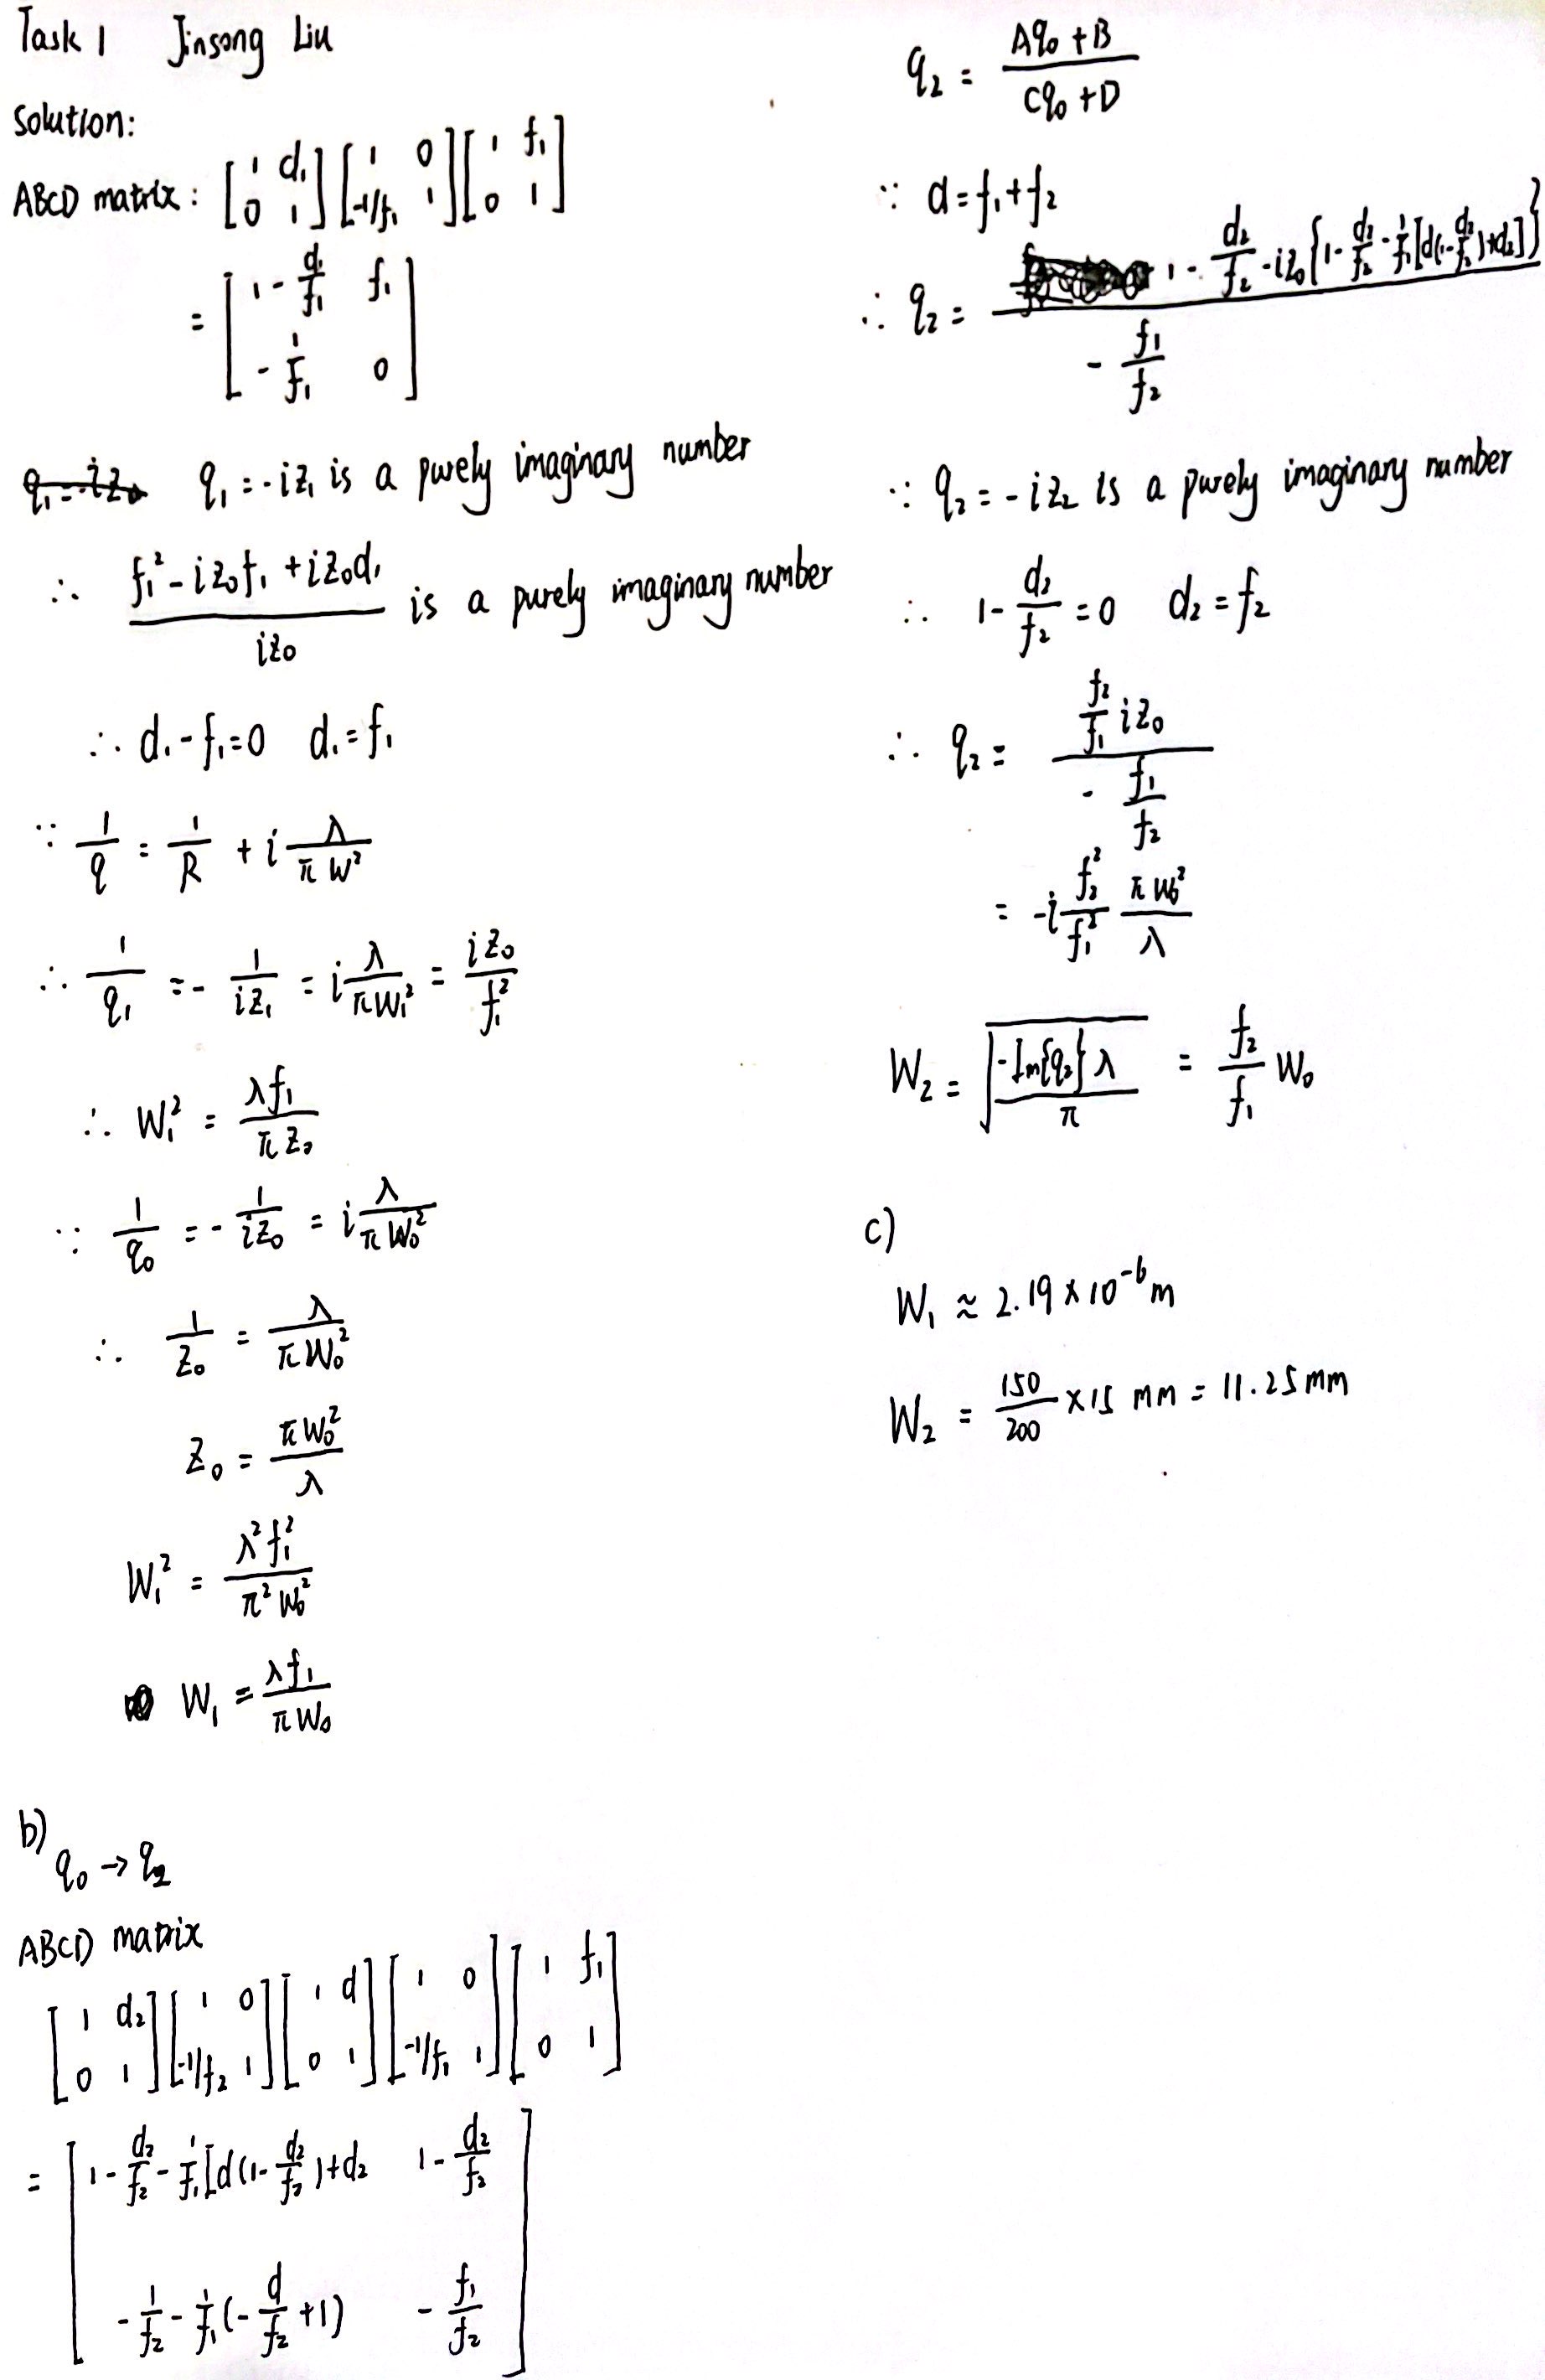 Task 1 Jinsong Liu
Solution:
ABCD matrix: [1 d₁; 0 1] [1 0; -1/f₁ 1] [1 f₁; 0 1]
= [1 - d₁/f₁ f₁; -1/f₁ 0]
q₁ = -iz₁ is a purely imaginary number
∴ (f₁² - iz₀f₁ + iz₀d₁)/(iz₀) is a purely imaginary number
∴ d₁ - f₁ = 0 d₁ = f₁
∵ 1/q = 1/R + i λ/(πW²)
∴ 1/q₁ = - 1/(iz₁) = i λ/(πW₁²) = iz₀/f₁²
∴ W₁² = λf₁/(πz₀)
∵ 1/q₀ = - 1/(iz₀) = i λ/(πW₀²)
∴ 1/z₀ = λ/(πW₀²)
z₀ = πW₀²/λ
W₁² = λ²f₁²/(π²W₀²)
W₁ = λf₁/(πW₀)
b)
q₀ → q₂
ABCD matrix
[1 d₂; 0 1] [1 0; -1/f₂ 1] [1 d; 0 1] [1 0; -1/f₁ 1] [1 f₁; 0 1]
= [1 - d₂/f₂ - 1/f₁[d(1 - d₂/f₂) + d₂ 1 - d₂/f₂; -1/f₂ - 1/f₁(-d/f₂ + 1) -f₁/f₂]
q₂ = (Aq₀ + B)/(Cq₀ + D)
∵ d = f₁ + f₂
∴ q₂ = (1 - d₂/f₂ - iz₀{1 - d₂/f₂ - 1/f₁[d(1 - d₂/f₂) + d₂]})/(-f₁/f₂)
∵ q₂ = -iz₂ is a purely imaginary number
∴ 1 - d₂/f₂ = 0 d₂ = f₂
∴ q₂ = (f₂/f₁ iz₀)/(-f₁/f₂)
= -i f₂²/f₁² πW₀²/λ
W₂ = √(-Im{q₂}λ/π) = f₂/f₁ W₀
c)
W₁ ≈ 2.19 × 10⁻⁶ m
W₂ = 150/200 × 15 mm = 11.25 mm